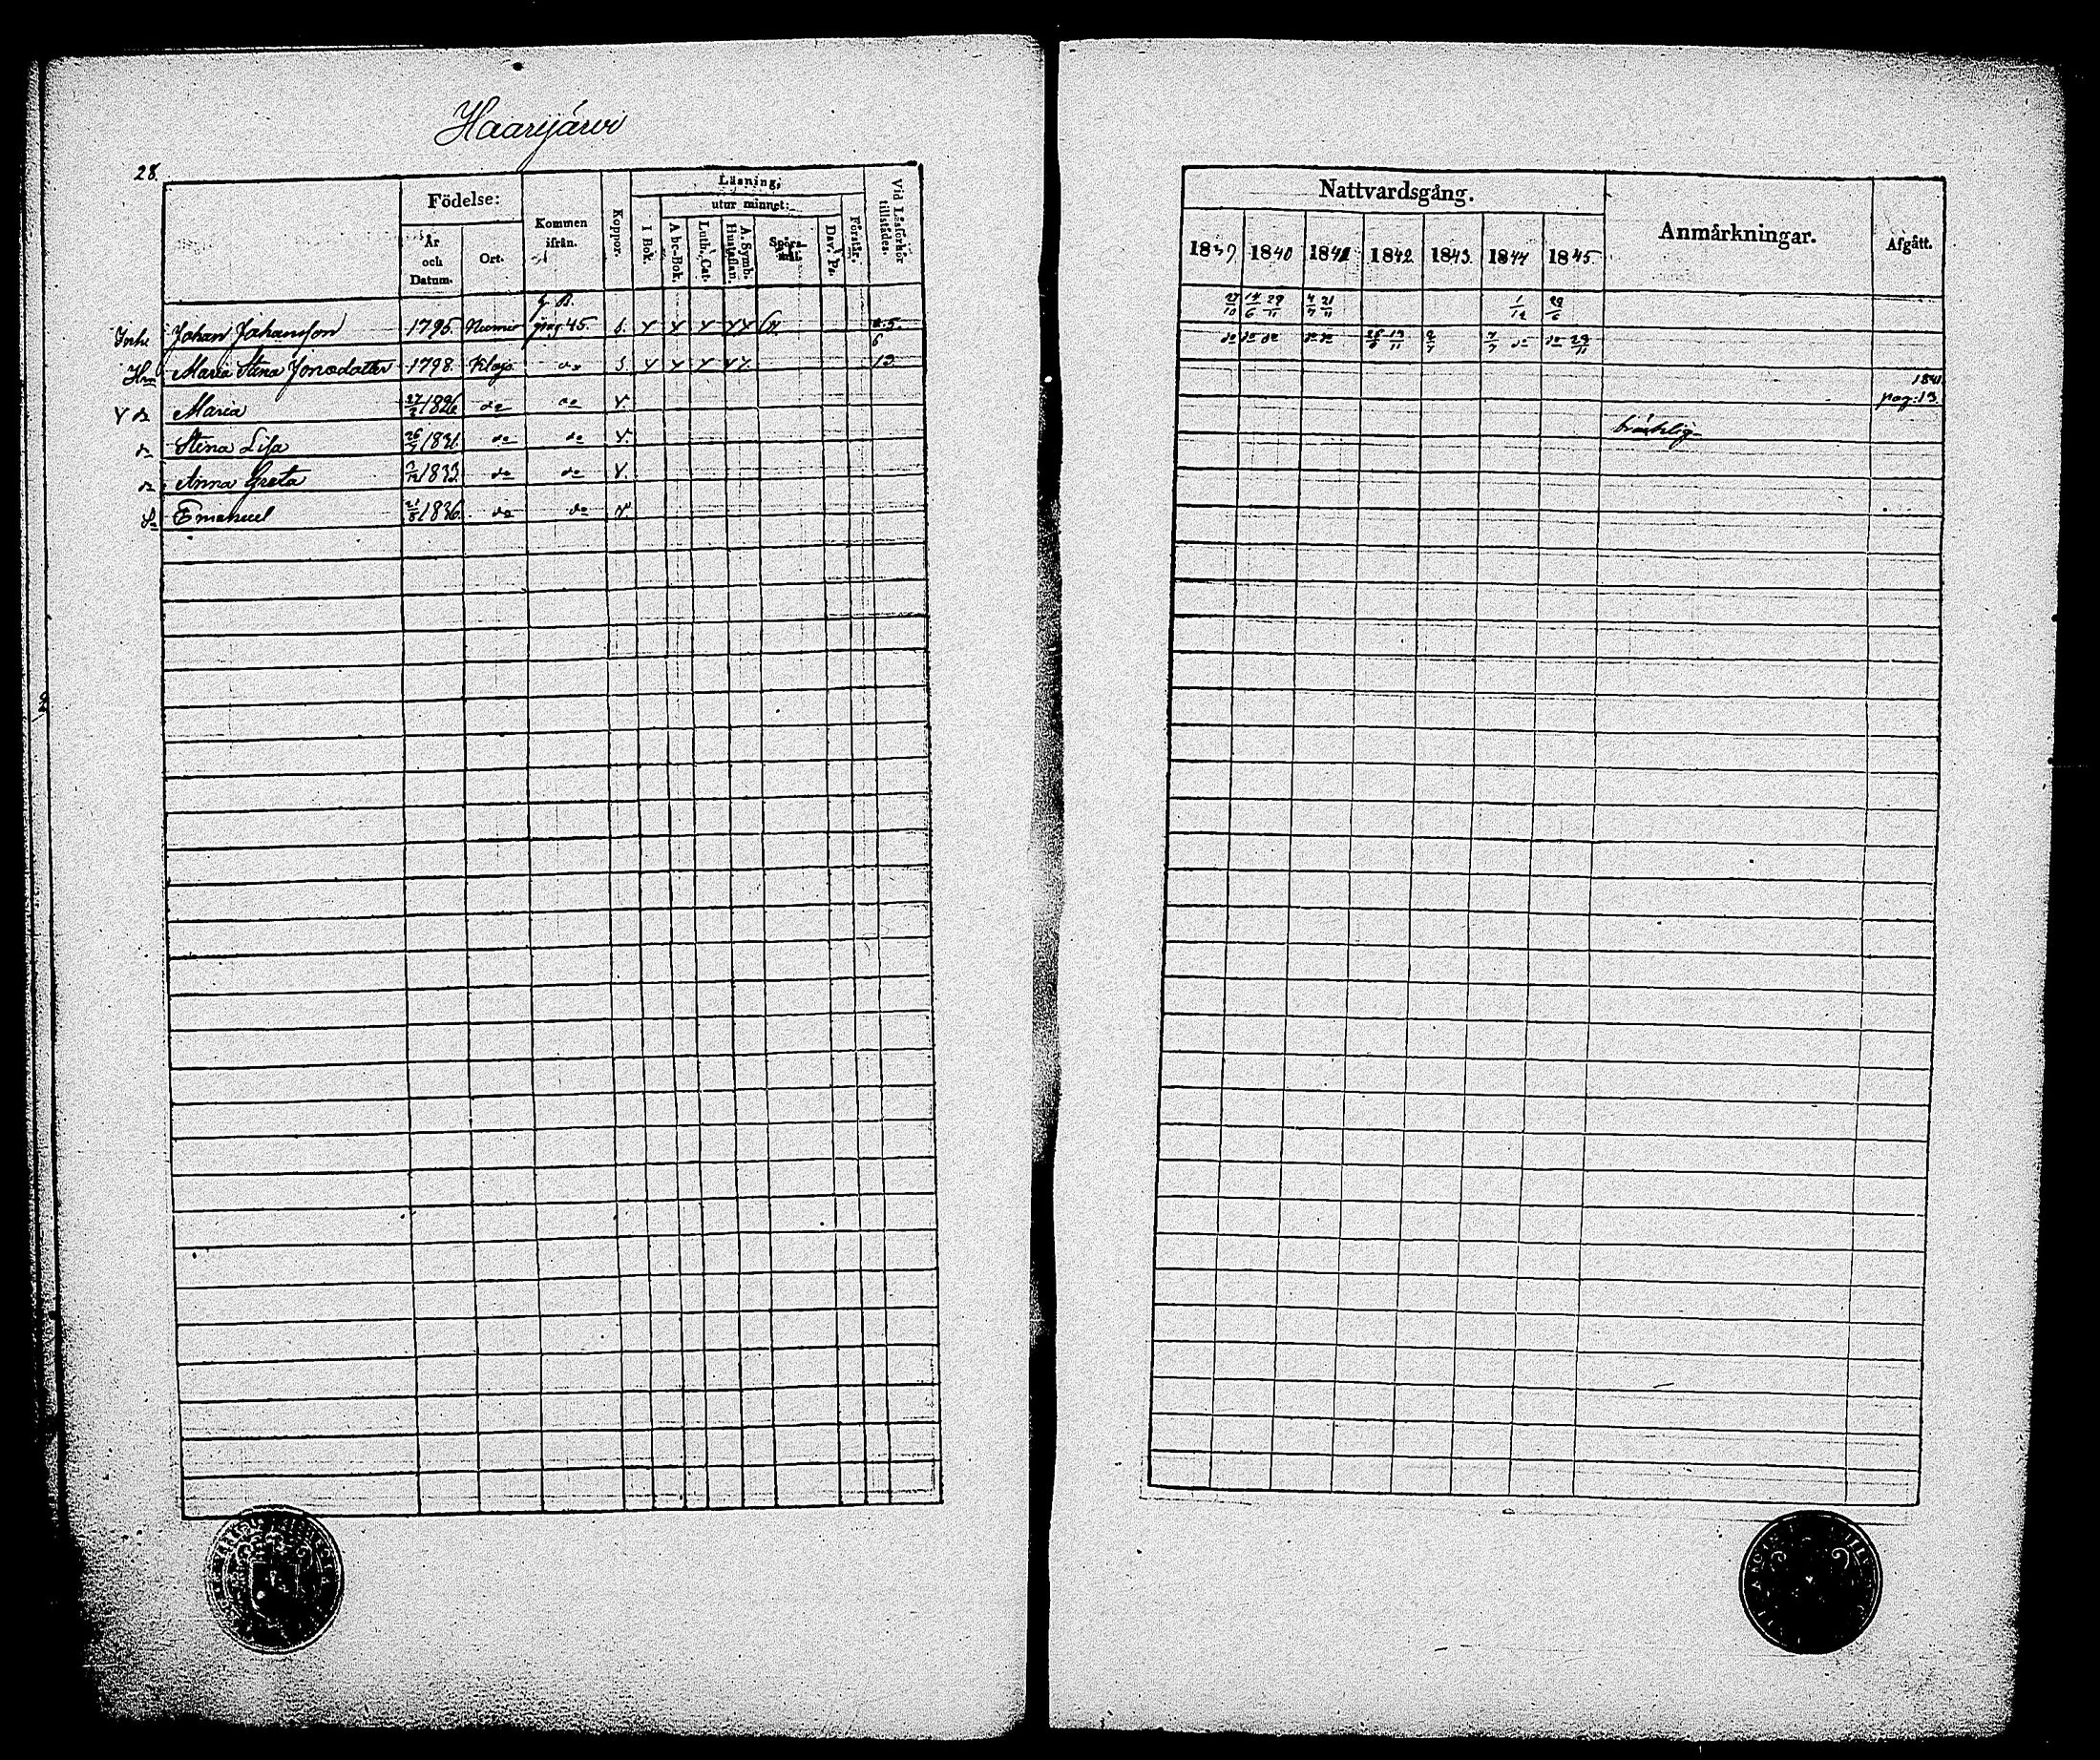 Haarijärvi
28.
Födelse:
År och Datum.
Ort.
Kommen ifrån.
Koppor.
Läsning,
I Bok.
utur minnet:
Abc-Bok.
Luth. Cat.
A. Symb. Hustaflan.
Spörs-mål.
Dav. Ps.
Förstår.
Vid Läsförhör tillstädes.
g B.
Inhs Johan Johansson 1795. Numis pag 45. s. 5.
6
Hn Maria Stina Jonsdotter 1798. Klajo do s. 13
Maria 27/2 1826 do do v.
do Stina Lisa 26/7 1831. do do v.
do Anna Greta 1833. do do v.
Sn Emanuel 1836. do do v.
Nattvardsgång.
1839 1840 1841 1842 1843 1844 1845
Anmärkningar.
Afgått.
27/10 14/6 29/11 4/7 21/11 1/12 29/6
do do do do do 13/11 2/7 7/7 do do 23/11
1841.
pag: 13.
bräcklig